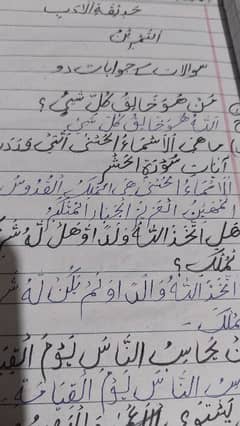 حدیقة الادب
التمرین
سوالات کے جوابات دو
مَنْ هُوَ خَالِقُ كُلِّ شَيْءٍ؟
اَللّٰهُ هُوَ خَالِقُ كُلِّ شَيْءٍ
مَا هِيَ الْأَسْمَاءُ الْحُسْنٰى الَّتِيْ وَرَدَتْ
آيَاتِ سُوْرَةِ الْحَشْرِ
اَلْأَسْمَاءُ الْحُسْنٰى هِيَ الْمَلِكُ الْقُدُّوْسُ
الْمُهَيْمِنُ الْعَزِيْزُ الْجَبَّارُ الْمُتَكَبِّرُ
هَلِ اتَّخَذَ اللّٰهُ وَلَدًا اَوْ هَلْ لَهُ
الْمُلْكِ؟
اتَّخَذَ اللّٰهُ وَلَدًا وَلَمْ يَكُنْ لَهُ
الْمُلْكِ۔
يُحَاسِبُ النَّاسَ يَوْمَ
النَّاسَ يَوْمَ الْقِيَامَةِ